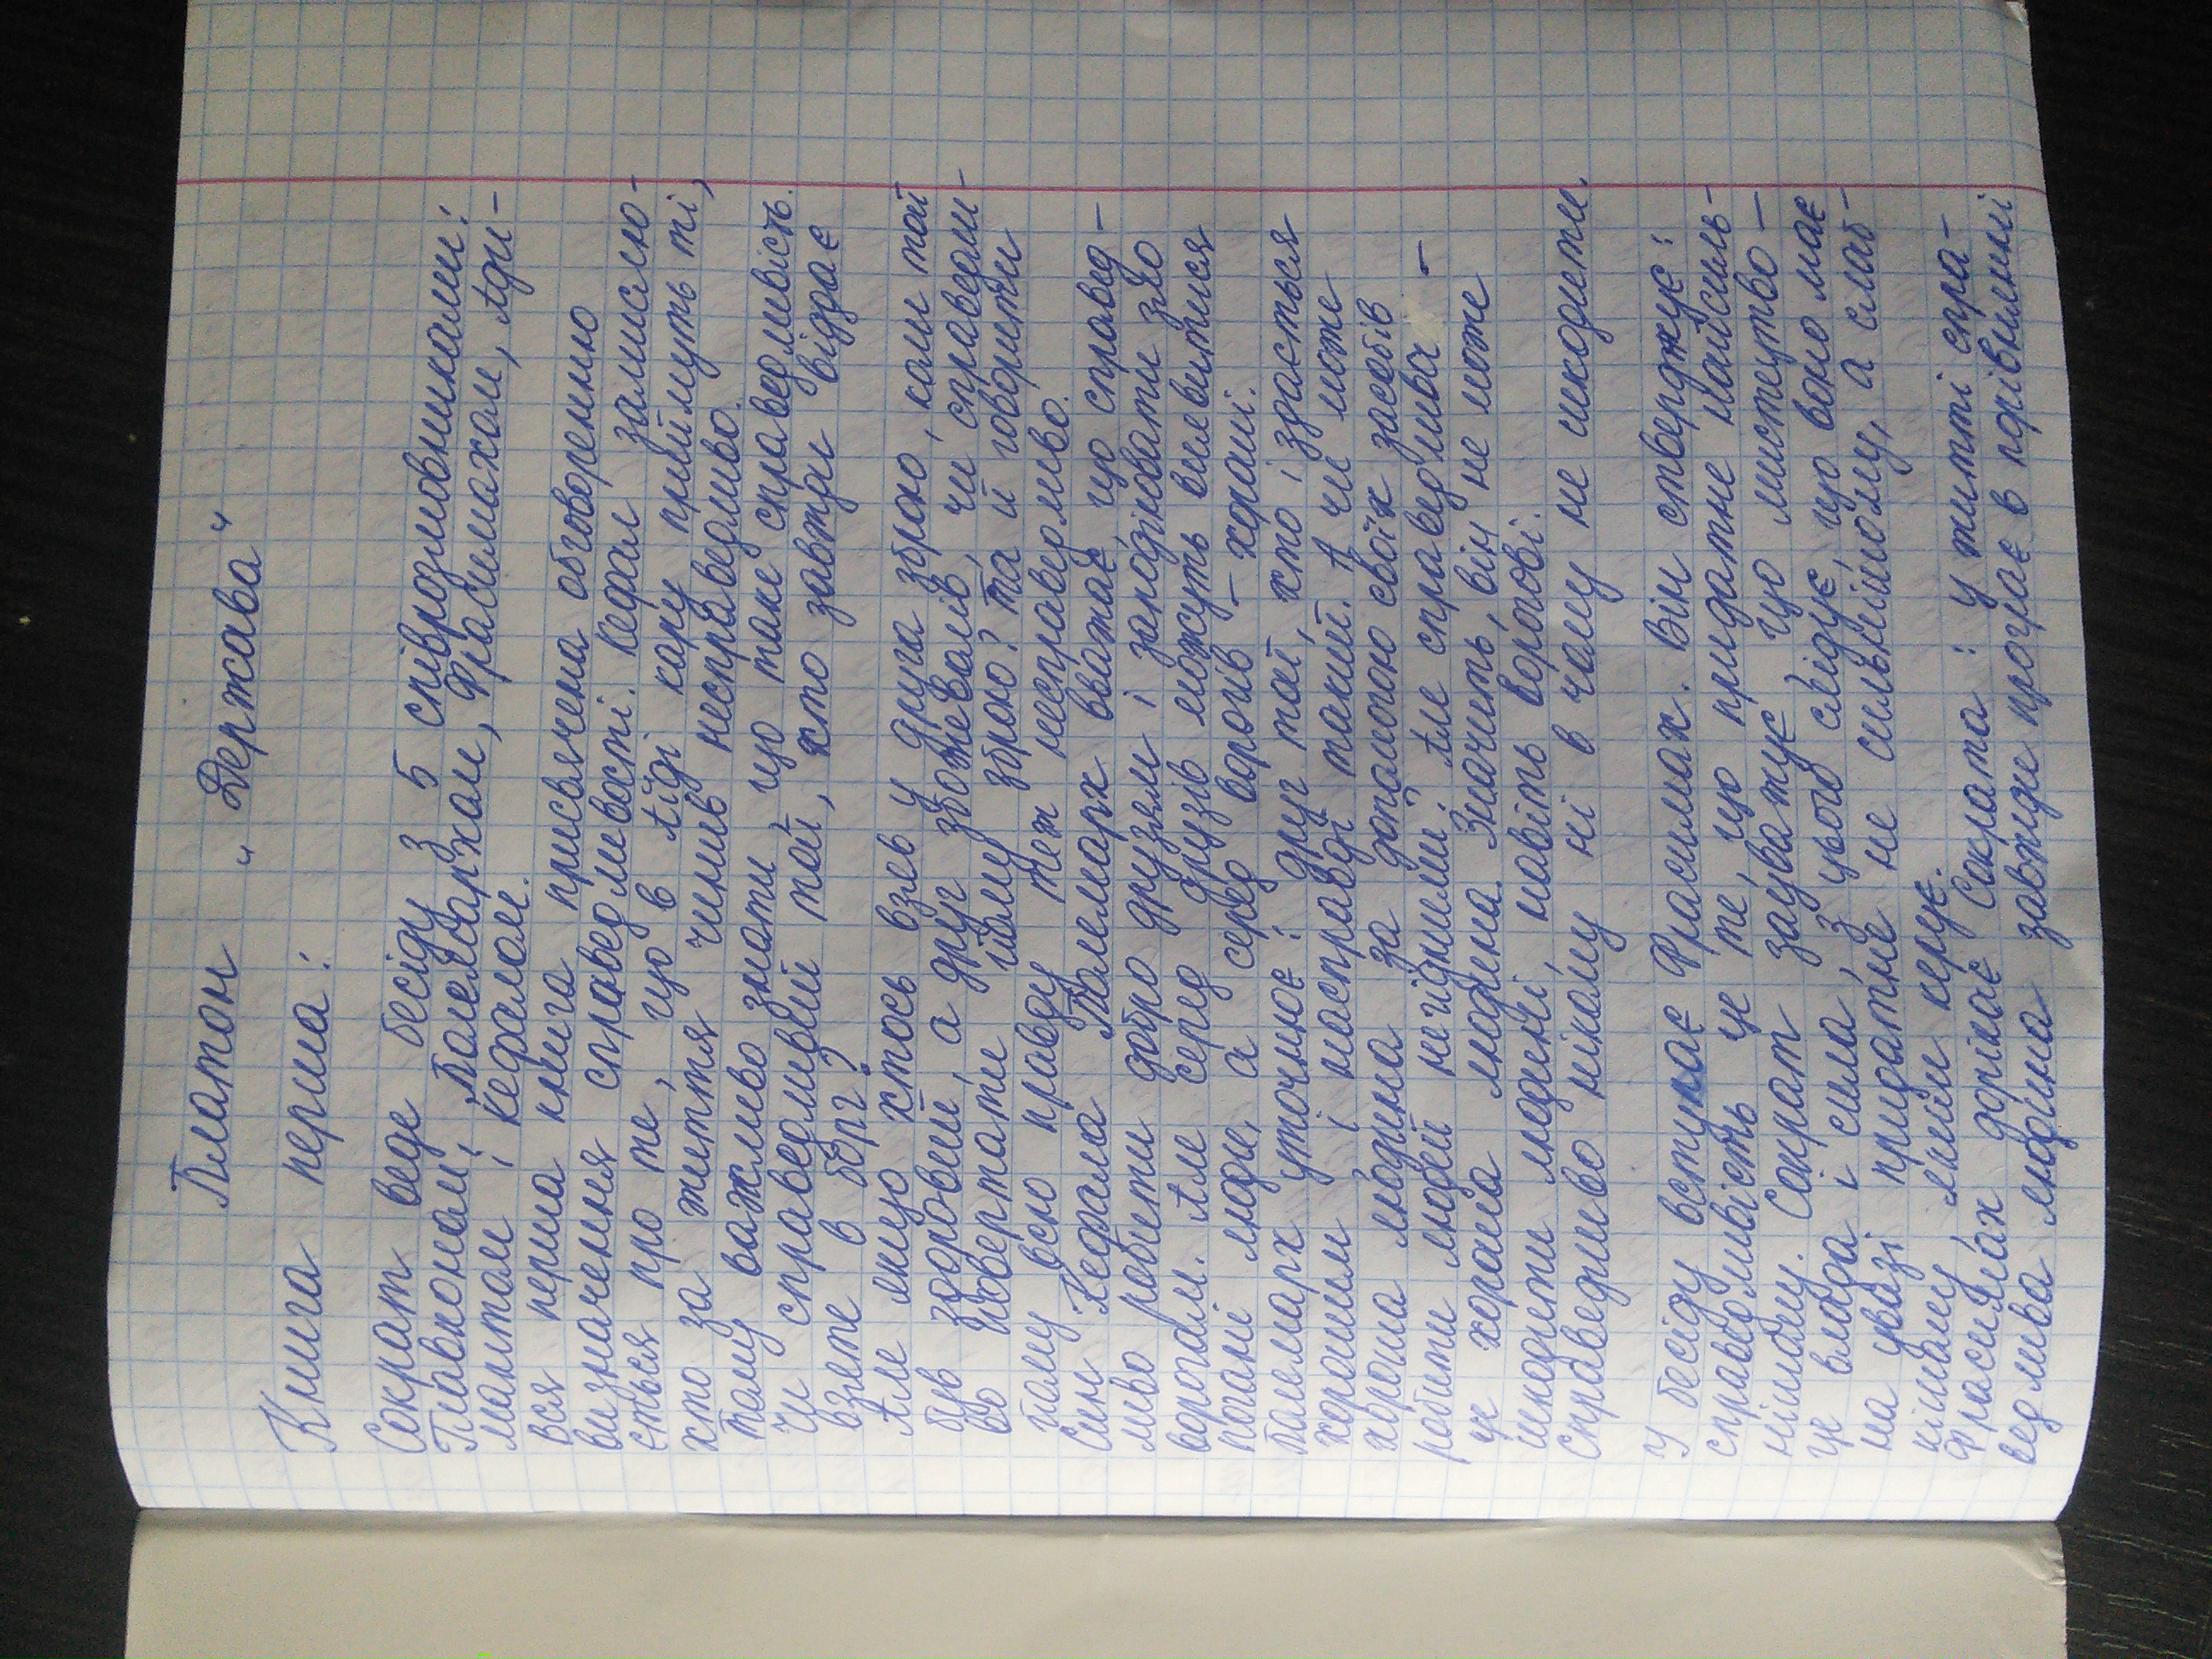 Платон „Держава"
Книга перша:
Сократ веде бесіду з 5 співрозмовниками:
Главконом, Полемархом, Фрасимахом, Аді-
мантом і Кефалом.
Вся перша книга присвячена обговоренню
визначення справедливості. Кефал замислю-
ється про те, що в Аїді кару приймуть ті,
хто за життя чинив несправедливо.
Тому важливо знати, що таке справедливість.
Чи справедливий той, хто завжди віддає
взяте в борг?
Але якщо хтось взяв у друга зброю, коли той
був здоровий, а друг збожеволів, чи справедли-
во повертати йому зброю? Та й говорити
йому всю правду теж несправедливо.
Син Кефала Полемарх вважає, що справед-
ливо робити добро друзям і заподіювати зло
ворогам. Але серед друзів можуть виявитися
погані люди, а серед ворогів – хороші.
Полемарх уточнює: друг той, хто і здається
хорошим і насправді такий. А чи може
хороша людина за допомогою своїх засобів
робити людей негідними? Але справедлива –
це хороша людина. Значить, він не може
шкодити людині, навіть ворогові.
Справедливо нікому ні в чому не шкодити.
У бесіду вступає Фрасимах. Він стверджує:
справедливість це те, що придатне найсиль-
нішому. Сократ зауважує, що мистецтво –
це влада і сила, з цього слідує, що воно має
на увазі придатне не сильнішому, а слаб-
кішому, яким керує.
Фрасимах дорікає Сократа: у житті спра-
ведлива людина завжди програє в порівнянні